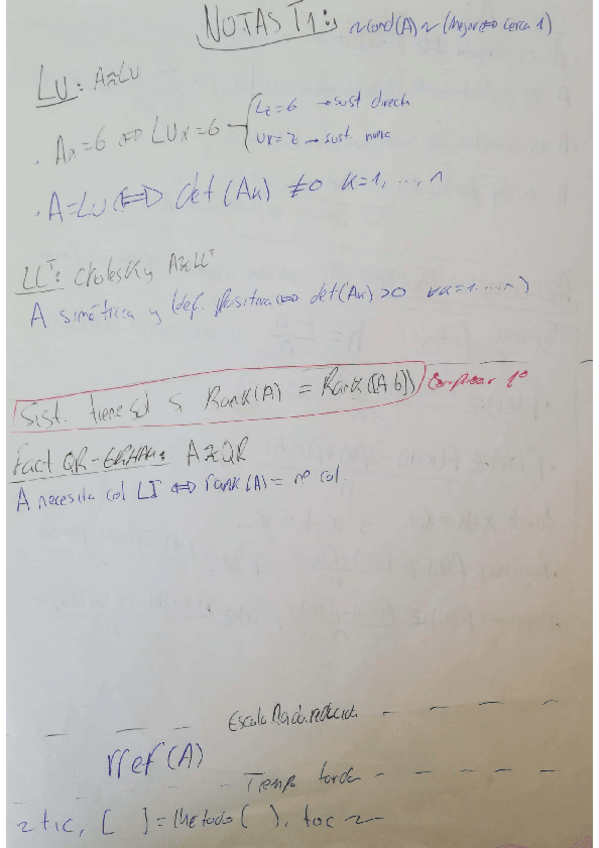 NOTAS T1: ~ Cond(A) ~ (Mejor ⇔ cerca 1)
LU: A≈LU
. Ax=b ⇔ LUx=b { Lz=b → sust direct
Ux=z → sust. inversa
. A=LU ⇔ det(Ak) ≠0 k=1,...,n
LLᵀ: Cholesky A≈LLᵀ
A simétrica y (def. positiva ⇔ det(Ak)>0 ∀k=1,...,n)
Sist. tiene sol s Rank(A) = Rank([A b]) Comprobar 1º
Fact QR - GRHAM: A≈QR
A necesita col LI ⇔ rank(A) = nº col.
Escalonada reducida
rref(A)
Tiempo tarda
~ tic, [ ] = Metodo( ), toc ~